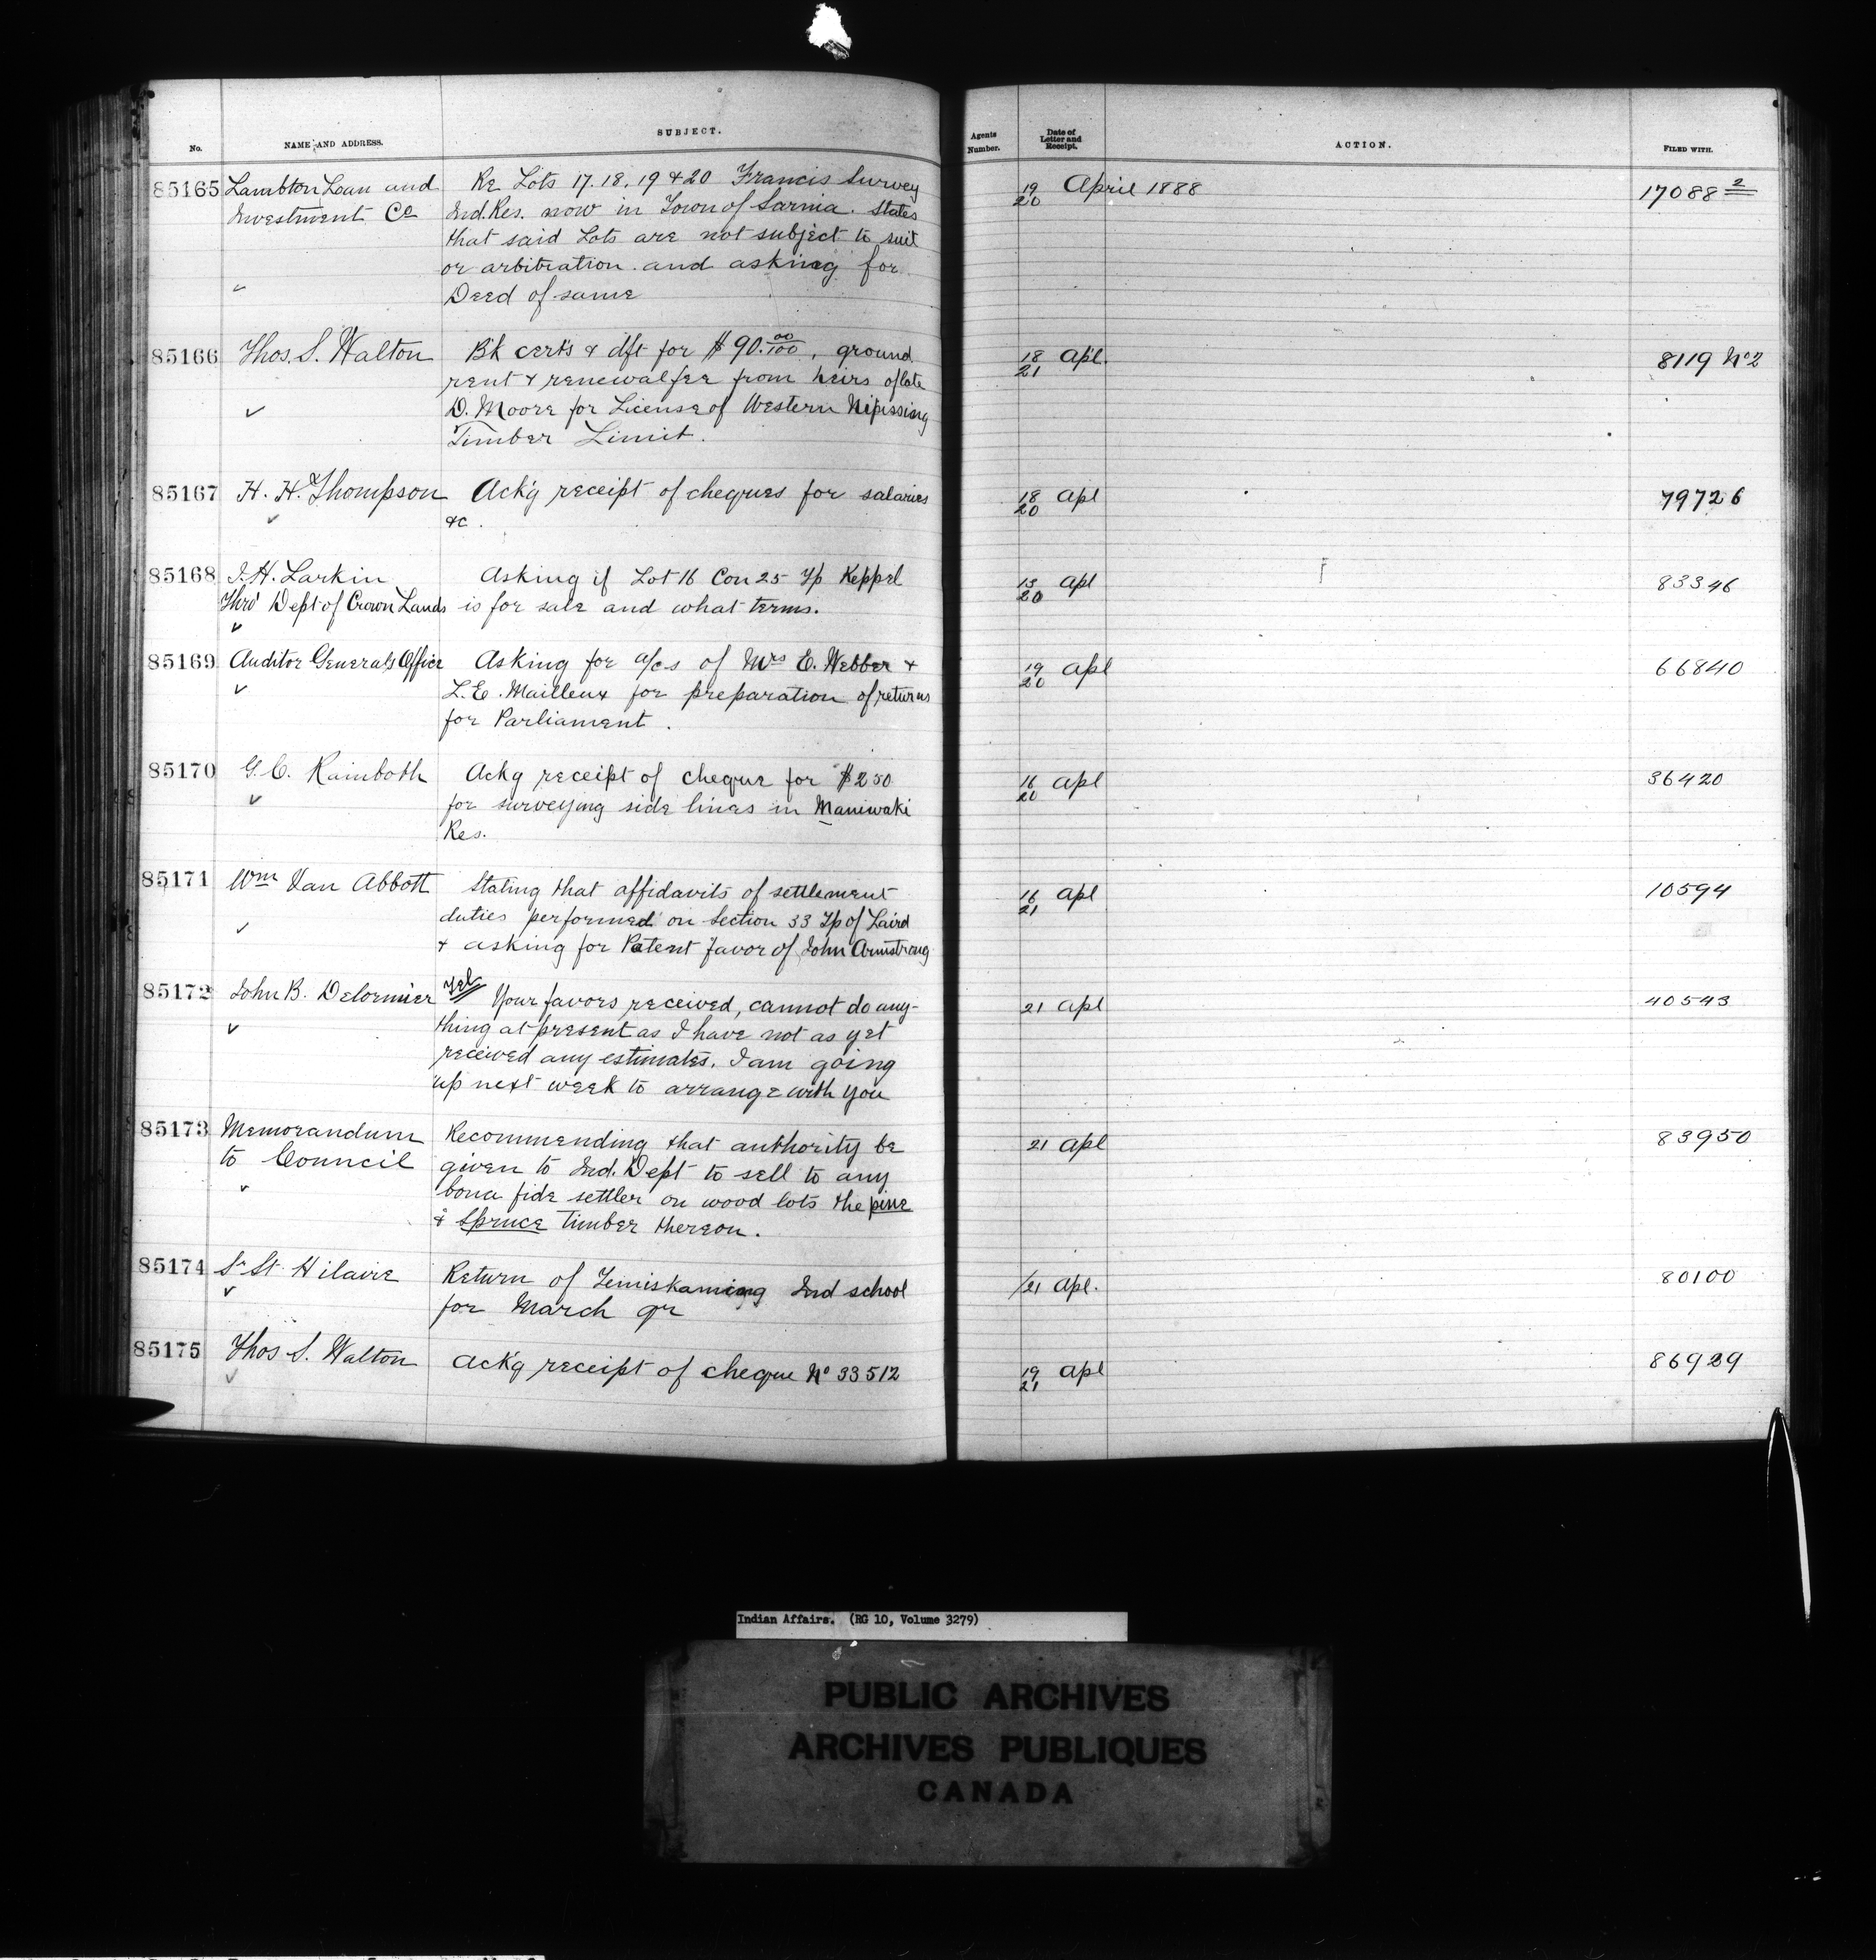 No. NAME AND ADDRESS. SUBJECT. Agents Number. Date of Letter and Receipt. ACTION. FILED WITH.
85165 Lambton Loan and Re Lots 17. 18. 19 & 20 Francis Survey 19/20 April 1888 17088 2
Investment Co Ind. Res. now in Town of Sarnia. States
that said Lots are not subject to suit
or arbitration and asking for
Deed of same
85166 Thos. S. Walton B'k certs & dft for $90.00/100, ground 18/21 Apl. 8119 No 2
rent & renewal fee from heirs of late
D. Moore for License of Western Nipissing
Timber Limit.
85167 H. H. Thompson Ack'g receipt of cheques for salaries 18/20 Apl 79726
&c.
85168 J. H. Larkin Asking if Lot 16 Con 25 Tp Keppel 13/20 Apl 83346
Thro' Dept of Crown Lands is for sale and what terms.
85169 Auditor General's Office Asking for a/cs of Mrs E. Webber & 19/20 Apl 66840
L. E. Mailleux for preparation of returns
for Parliament.
85170 G. C. Rainboth Ackg receipt of cheque for $250 16/20 Apl 36420
for surveying side lines in Maniwaki
Res.
85171 Wm Van Abbott Stating that affidavits of settlement 16/21 Apl 10594
duties performed on Section 33 Tp of Laird
& asking for Patent favor of John Armstrong
85172 John B. Delormier Tel Your favors received, cannot do any- 21 Apl 40543
thing at present as I have not as yet
received any estimates. I am going
up next week to arrange with you
85173 Memorandum Recommending that authority be 21 Apl 83950
to Council given to Ind. Dept to sell to any
bona fide settler on wood lots the pine
& Spruce Timber thereon.
85174 Sr St. Hilaire Return of Temiskaming Ind school /21 Apl. 80100
for March qr
85175 Thos S. Walton Ack'g receipt of cheque No 33512 19/21 Apl 86929
Indian Affairs. (RG 10, Volume 3279)
PUBLIC ARCHIVES
ARCHIVES PUBLIQUES
CANADA